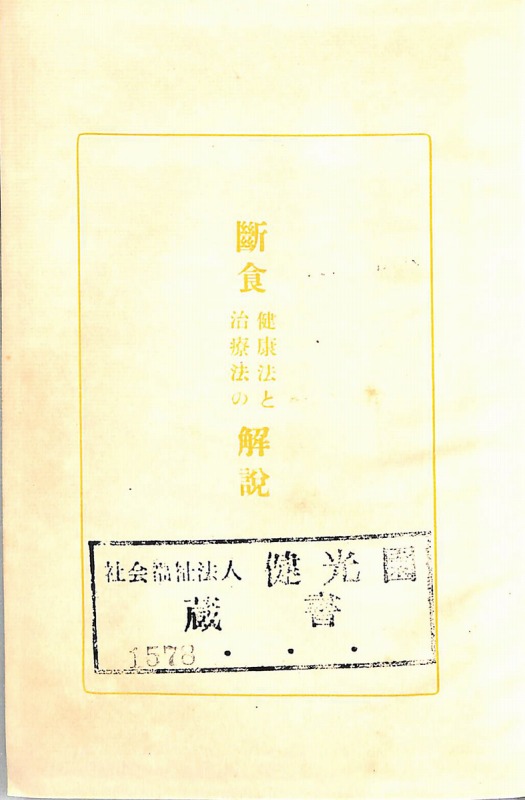 斷食
健康法と
治療法の
解說
社会福祉法人 健光園
蔵書
1578 . . .